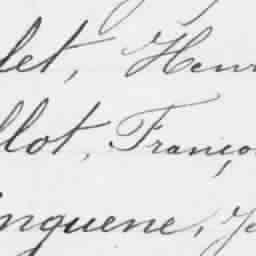 let, Henr
llot, Franço
nguene, Je